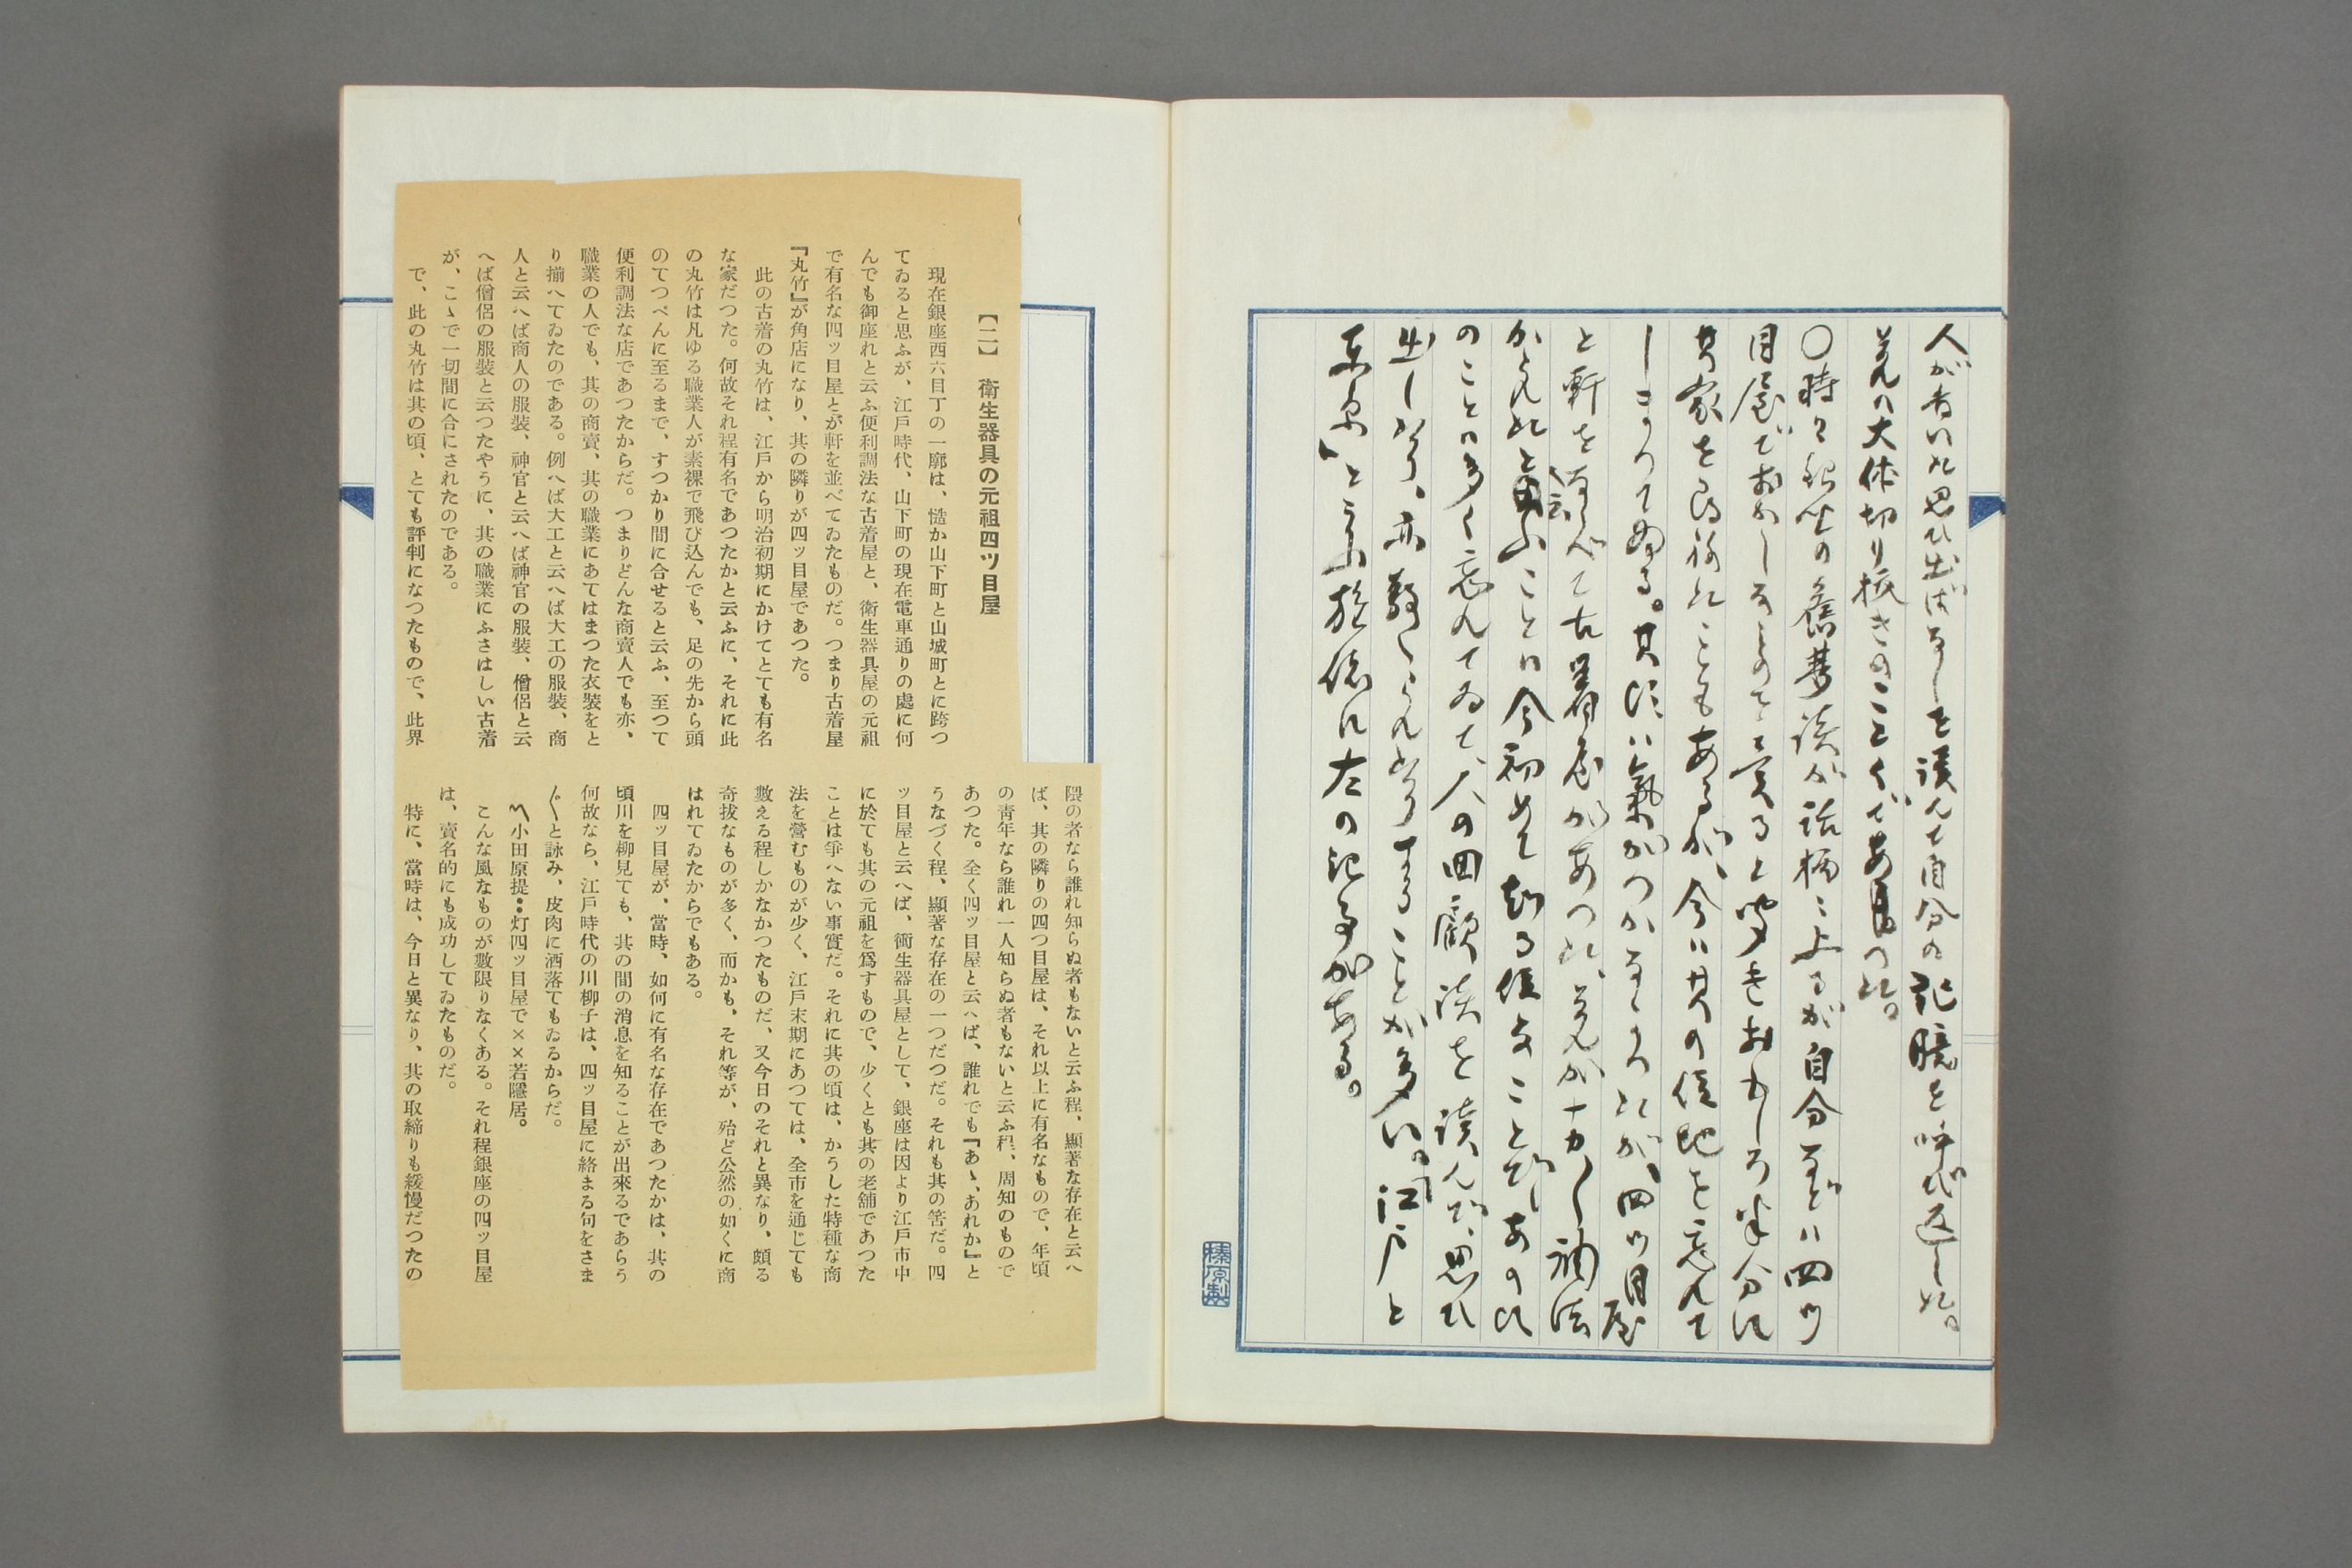 人が書いた思ひ出ばなしを讀んで自分の記臆を呼び返した。
それの大体切り抜きのことくであつた。
〇時々銀坐の舊夢談が話柄に上るが自分などハ四ツ
目屋でおかしなものを賣ると聞きおもしろ半分に
其家を
しまつてゐる。其頃ハ氣がつかなかつたが、四ツ目屋
と軒を並べて古着屋があつた、それが
かられたと云ふことハ今初めて知る
のことハ多く忘れてゐて、人の回顧談を讀んで、思ひ
出しかつ、亦
東京」と云ふ雑誌に左の記事がある。
榛原製
【二】 衛生器具の元祖四ツ目屋
現在銀座西六目丁の一廓は、慥か山下町と山城町とに跨つ
てゐると思ふが、江戸時代、山下町の現在電車通りの處に何
んでも御座れと云ふ便利調法な古着屋と、衛生器具屋の元祖
で有名な四ッ目屋とが軒を並べてゐたものだ。つまり古着屋
『丸竹』が角店になり、其の隣りが四ッ目屋であつた。
此の古着の丸竹は、江戸から明治初期にかけてとても有名
な家だつた。何故それ程有名であつたかと云ふに、それに此
の丸竹は凡ゆる職業人が素裸で飛び込んでも、足の先から頭
のてつぺんに至るまで、すつかり間に合せると云ふ、至つて
便利調法な店であつたからだ。つまりどんな商賣人でも亦、
職業の人でも、其の商賣、其の職業にあてはまつた衣裝をと
り揃へてゐたのである。例へば大工と云へば大工の服裝、商
人と云へば商人の服裝、神官と云へば神官の服裝、僧侶と云
へば僧侶の服裝と云つたやうに、其の職業にふさはしい古着
が、こゝで一切間に合にされたのである。
で、此の丸竹は其の頃、とても評判になつたもので、此界
隈の者なら誰れ知らぬ者もないと云ふ程、顯著な存在と云へ
ば、其の隣りの四つ目屋は、それ以上に有名なもので、年頃
の靑年なら誰れ一人知らぬ者もないと云ふ程、周知のもので
あつた。全く四ッ目屋と云へば、誰れでも『あゝ、あれか』と
うなづく程、顯著な存在の一つだつだ。それも其の筈だ。四
ッ目屋と云へば、衛生器具屋として、銀座は因より江戸市中
に於ても其の元祖を爲すもので、少くとも其の老舗であつた
ことは爭へない事實だ。それに其の頃は、かうした特種な商
法を營むものが少く、江戸末期にあつては、全市を通じても
數える程しかなかつたものだ、又今日のそれと異なり、頗る
奇拔なものが多く、而かも、それ等が、殆ど公然の如くに商
はれてゐたからでもある。
四ッ目屋が、當時、如何に有名な存在であつたかは、其の
頃川を柳見ても、其の間の消息を知ることが出來るであらう
何故なら、江戸時代の川柳子は、四ッ目屋に絡まる句をさま
〲と詠み、皮肉に洒落てもゐるからだ。
〽小田原提灯四ッ目屋で××若隱居。
こんな風なものが數限りなくある。それ程銀座の四ッ目屋
は、賣名的にも成功してゐたものだ。
特に、當時は、今日と異なり、其の取締りも緩慢だつたの